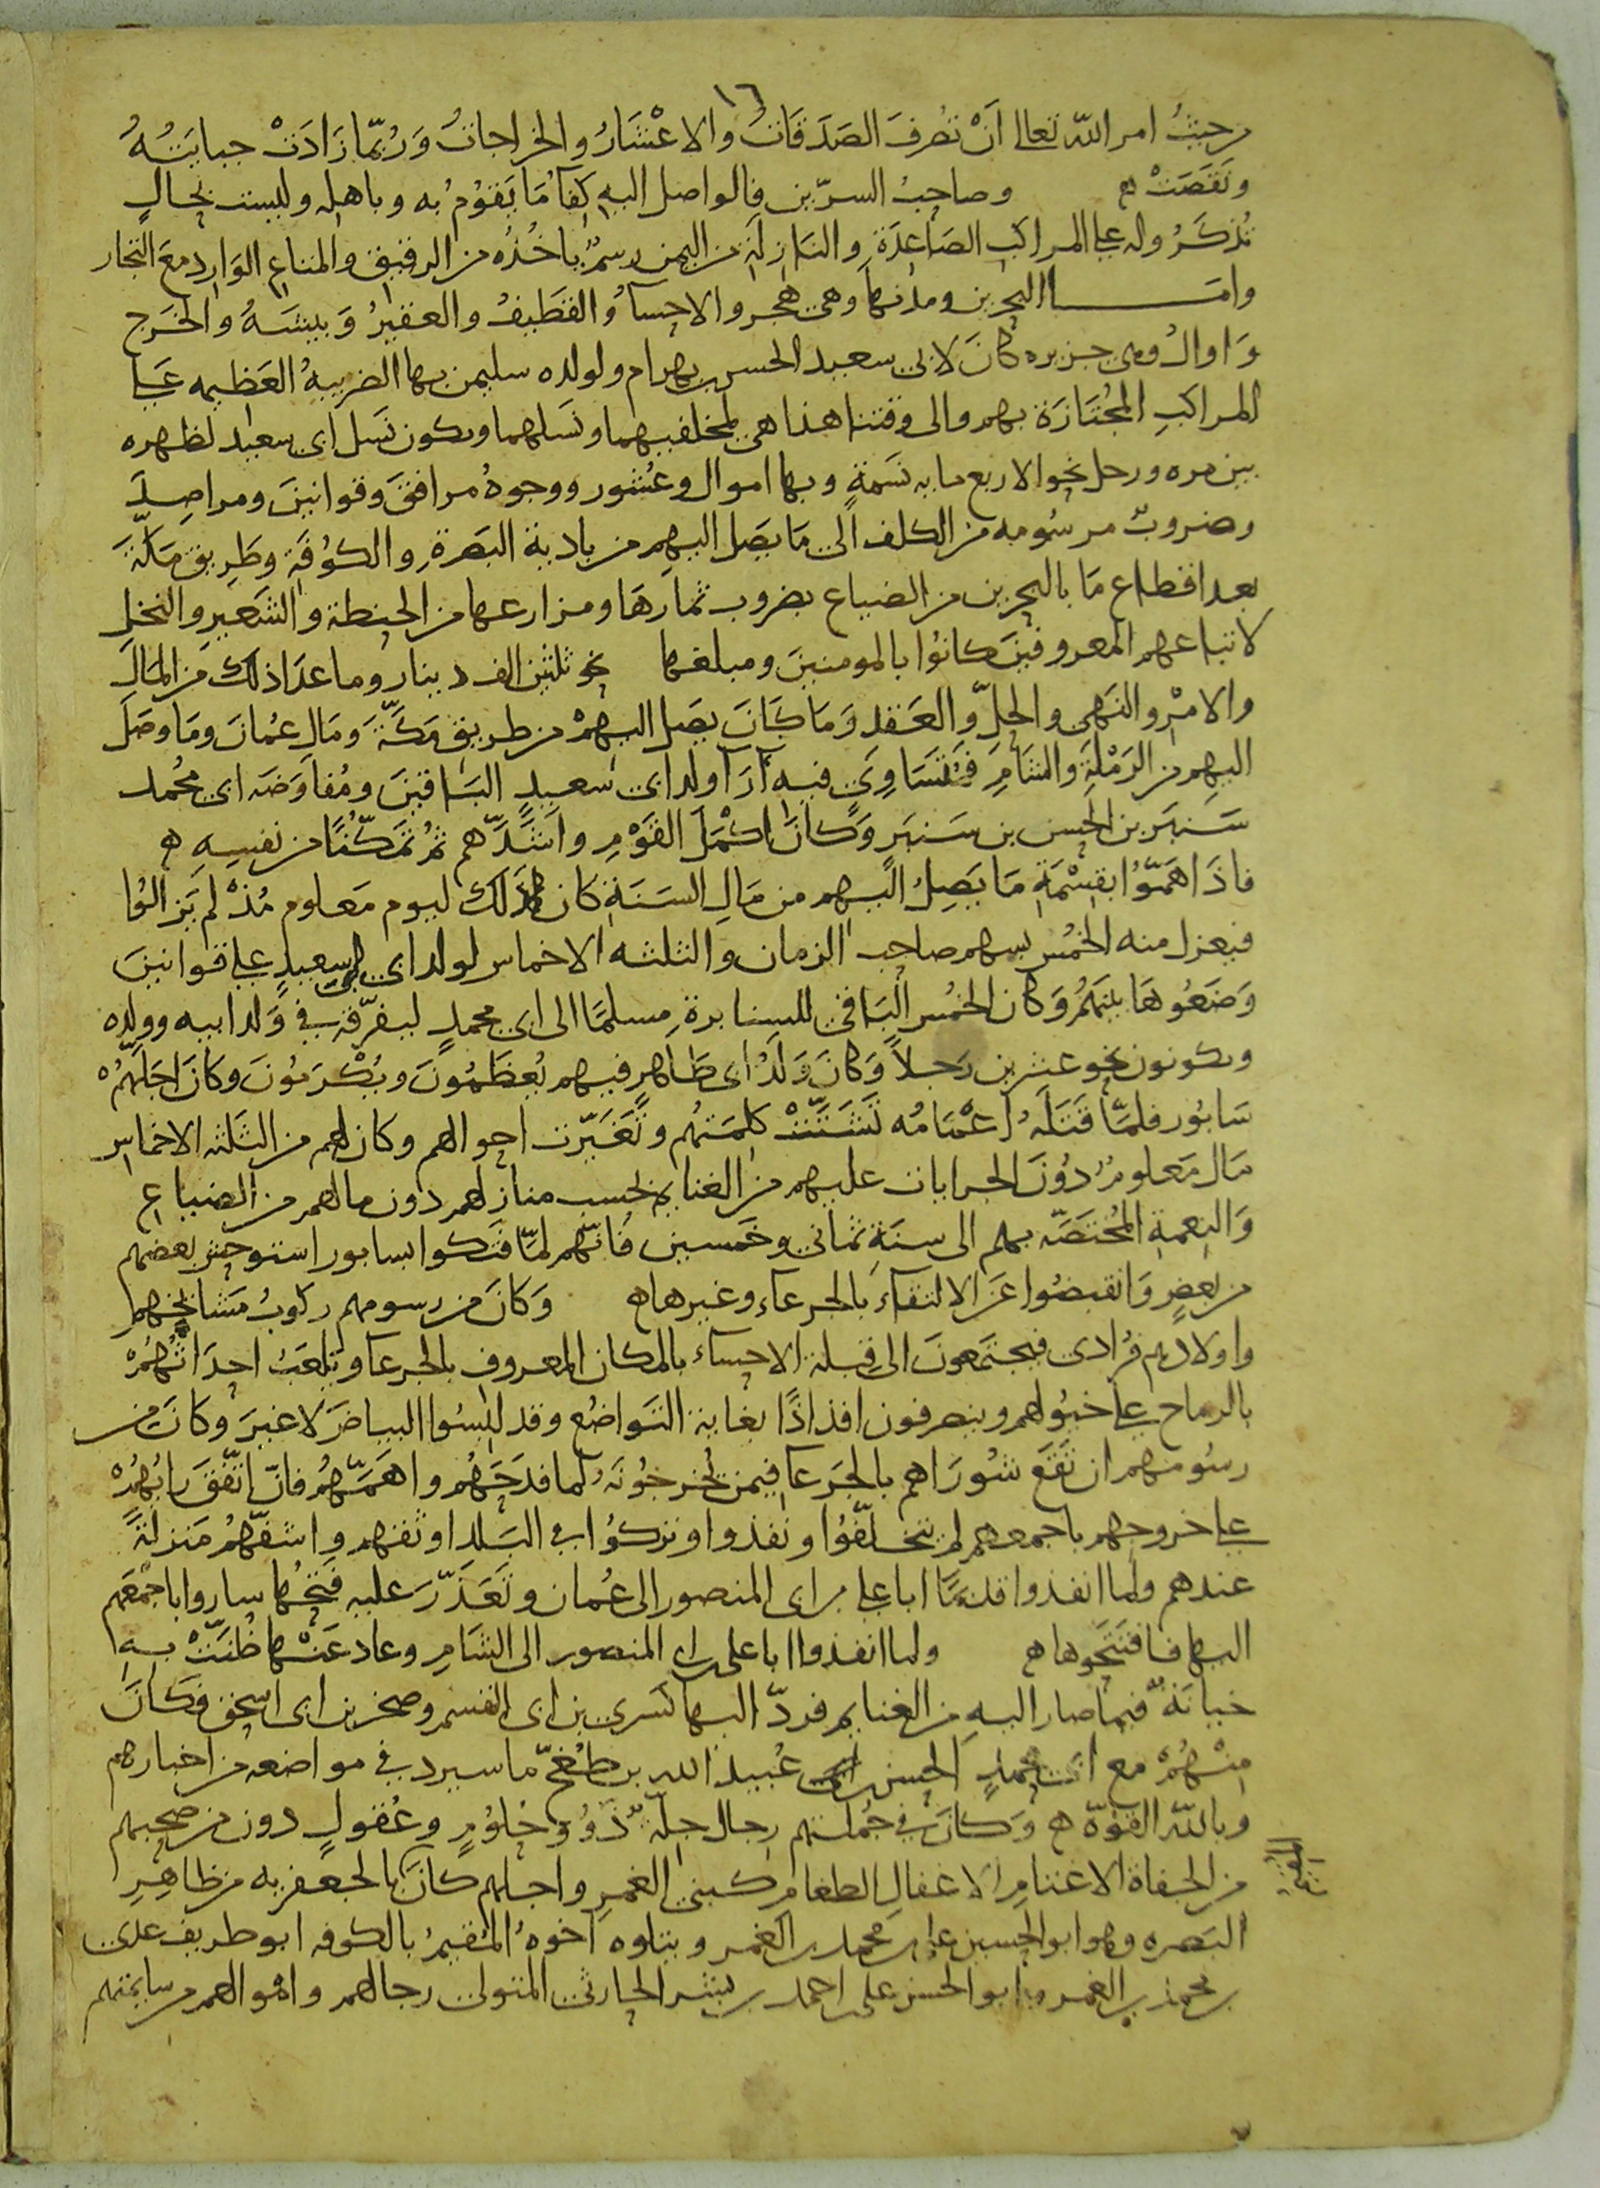 ١٦
من حيث امر الله تعالى اَنْ تصرفَ الصَدَقَاتُ والاعْشَارُ والخراجاتُ وَرُبّما زَادَتْ جبايَتُهُ
ونَقَصَتْ ه وصاحبُ السرّين فالواصل اليهِ كفآءُ مَا يَقوْمُ به وباهله وليست بحالٍ
تُذكَرُ وله على المراكب الصَاعدَةِ والنازلَةِ من اليمن رسمٌ ياخُذُه من الرقيق والمتاع الوَارد معَ التجار
وامَّا البحرين ومدنها وهى هجر والاحسآءُ والقَطَيفُ والعقيرُ وَبيشَهُ والخَرج
وَاوالُ وهى جزيره كانَ لابى سعيد الحسن بن بهرام ولولده سليمن بها الضريبهُ العَظيمه عَلى
المراكبِ المجُتَازَة بهم والى وقتنا هذا هى لمخلفيهما ونَسَلهما ويكون نَسَل ابى سعيد لظهره
بين مره ورجل نحو الاربع مايه نَسَمَةٍ وبها اموال وعُشور ووجوهُ مرافقَ وقوانينَ ومراصِدَ
وضروبٌ مرسُومه من الكلف الَى مَا يصَل اليهِم من بادية البَصَرةِ والكوُفَةِ وطَرِيق مَكّةَ
بعد اقطاع مَا بالبحرين من الضياع بضروب ثمارهَا ومزارعها من الحنطة والشَعيرِ والنخل
لاتباعهم المعروفينَ كانوُا بالمومنينَ ومبلغها نحو ثلثين الف دينار وما عدَا ذلك من المَالِ
والامْرِ والنَهى والحلّ والعَقد وَمَا كَانَ يصَل اليهِمْ من طريق مَكّةَ وَمَالِ عمُانَ ومَا وصَلَ
اليهِم من الرَمْلَةِ والشَامِ فمُتَسَاوِىَ فيه آرَآ ولد ابى سَعيدٍ البَاقينَ ومُفاوَضَه ابى محُمد
سَنبَر بن الحسن بن سَنبَرٍ وَكَانَ اكْمَلَ القَوْمِ واَشَدَّهم ثمُ تمكّنُا من نفسِهِ ه
فاذَا هَمّوُا بقسْمَةِ مَا يصِلُ اليهم من مَالِ السَنَةِ كان ذلك ليوم مَعلوم مُذْ لم يَزالوُا
فيعزل منه الخُمُس بسهم صاحب الزمان والثلثه الاخماس لولد ابى سعيدٍ على قوانينَ
وَضَعُوهَا بينَهمُ وَكان الخُمسُ البَاقى للسنابرةِ مسلمَّا الى ابى محمدٍ ليفرّقه فى وَلد ابيه وولده
ويكونون نحو عشرين رَجلاً وَكانَ وَلَدُ ابى طَاهرٍ فيهم يُعظَمُونَ ويُكْرَمُونَ وكَان اجَلّهُمْ
سَابُور فلمّا قتَلَهُ اَعْمَامُه تَشَتَّتْ كلِمَتهُم وتَغَيّرت احوالهم وكان لهم من الثَلثه الاخماس
مَال مَعلومٌ دُونَ الجرايات عليهم من الغنايم بحسب منازلهم دون مالهم من الضياع
وَالنِعمةِ المخُتَصَّه بهم الى سنَةِ ثمانى وخَمسين فَانّهم لمّا فَتكوا بسابور استوحش بعضهم
من بعضٍ وَانقبضُوا عَن الالتقآءِ بالجرعآء وغيرها ه وَكانَ من رسومهم ركوبُ مَشَايخهم
واولادهم فرُادى فيجتَمعونَ الى قبلةِ الاحسآء بالمكان المعروف بالجرعآ وتلعَبُ احدَاثُهُمْ
بالرماح على خيُولهم وينصرفون افذاذًا بغاية التَواضُع وقد البَسُوا البياضَ لا غيرَ وكانَ من
رسُومهم ان تقَع شُورَاهم بالجَرعآ فيمن يخرجُونَهُ لما فدَحَهُم واهَمّهُم فانّ اتّفقَ رايُهُمْ
على خروجهم باجمعهم لم يتخلّفوُا ونفذوا وتركُوا فى البَلد اوثقهم واشفّهُمْ مَنزلةً
عندهم ولما انفذوا قديمًا ابا على بن ابى المنصور الى عُمان وتَعَذّرَ عليه فَتحُها ساروا باجمْعَهم
اليها فافتَتَحوها ه ولما انفذوا ابا على بن ابى المنصور الى الشَامِ وعاد عَنْها ظُنّتْ بهِ
خيانَةٌ فيما صار اليهِ من الغنايم فردّ اليها كسَرى بن ابى القسم وصخر بن ابى اسحق فكَانَ
مِنْهُمْ مع ابى محمدٍ الحسن بن عُبيد الله بن طُغُجّ ما سيرد فى مواضعه من اخبارهم
وبالله القوّة ه وَكانَ فى جُملتهم رجال جِلّة ذَوُو حُلوُمٍ وعُقولٍ دون من صحبهم
من الجفاة الاغتامِ الاغفالِ الطغام كبنى الغمرِ واجلهم كانَ بالجعفريه من ظَاهِرِ
البَصره وهو ابو الحسين على بن محمد بن الغمر ويتلوه اخوهُ المقيمُ بالكوفه ابو طريف عدى
بن محمد بن الغمر وابو الحسن على بن احمد بن بشر الحارثى المتولى رجالهم واموالهم من سايمتهم